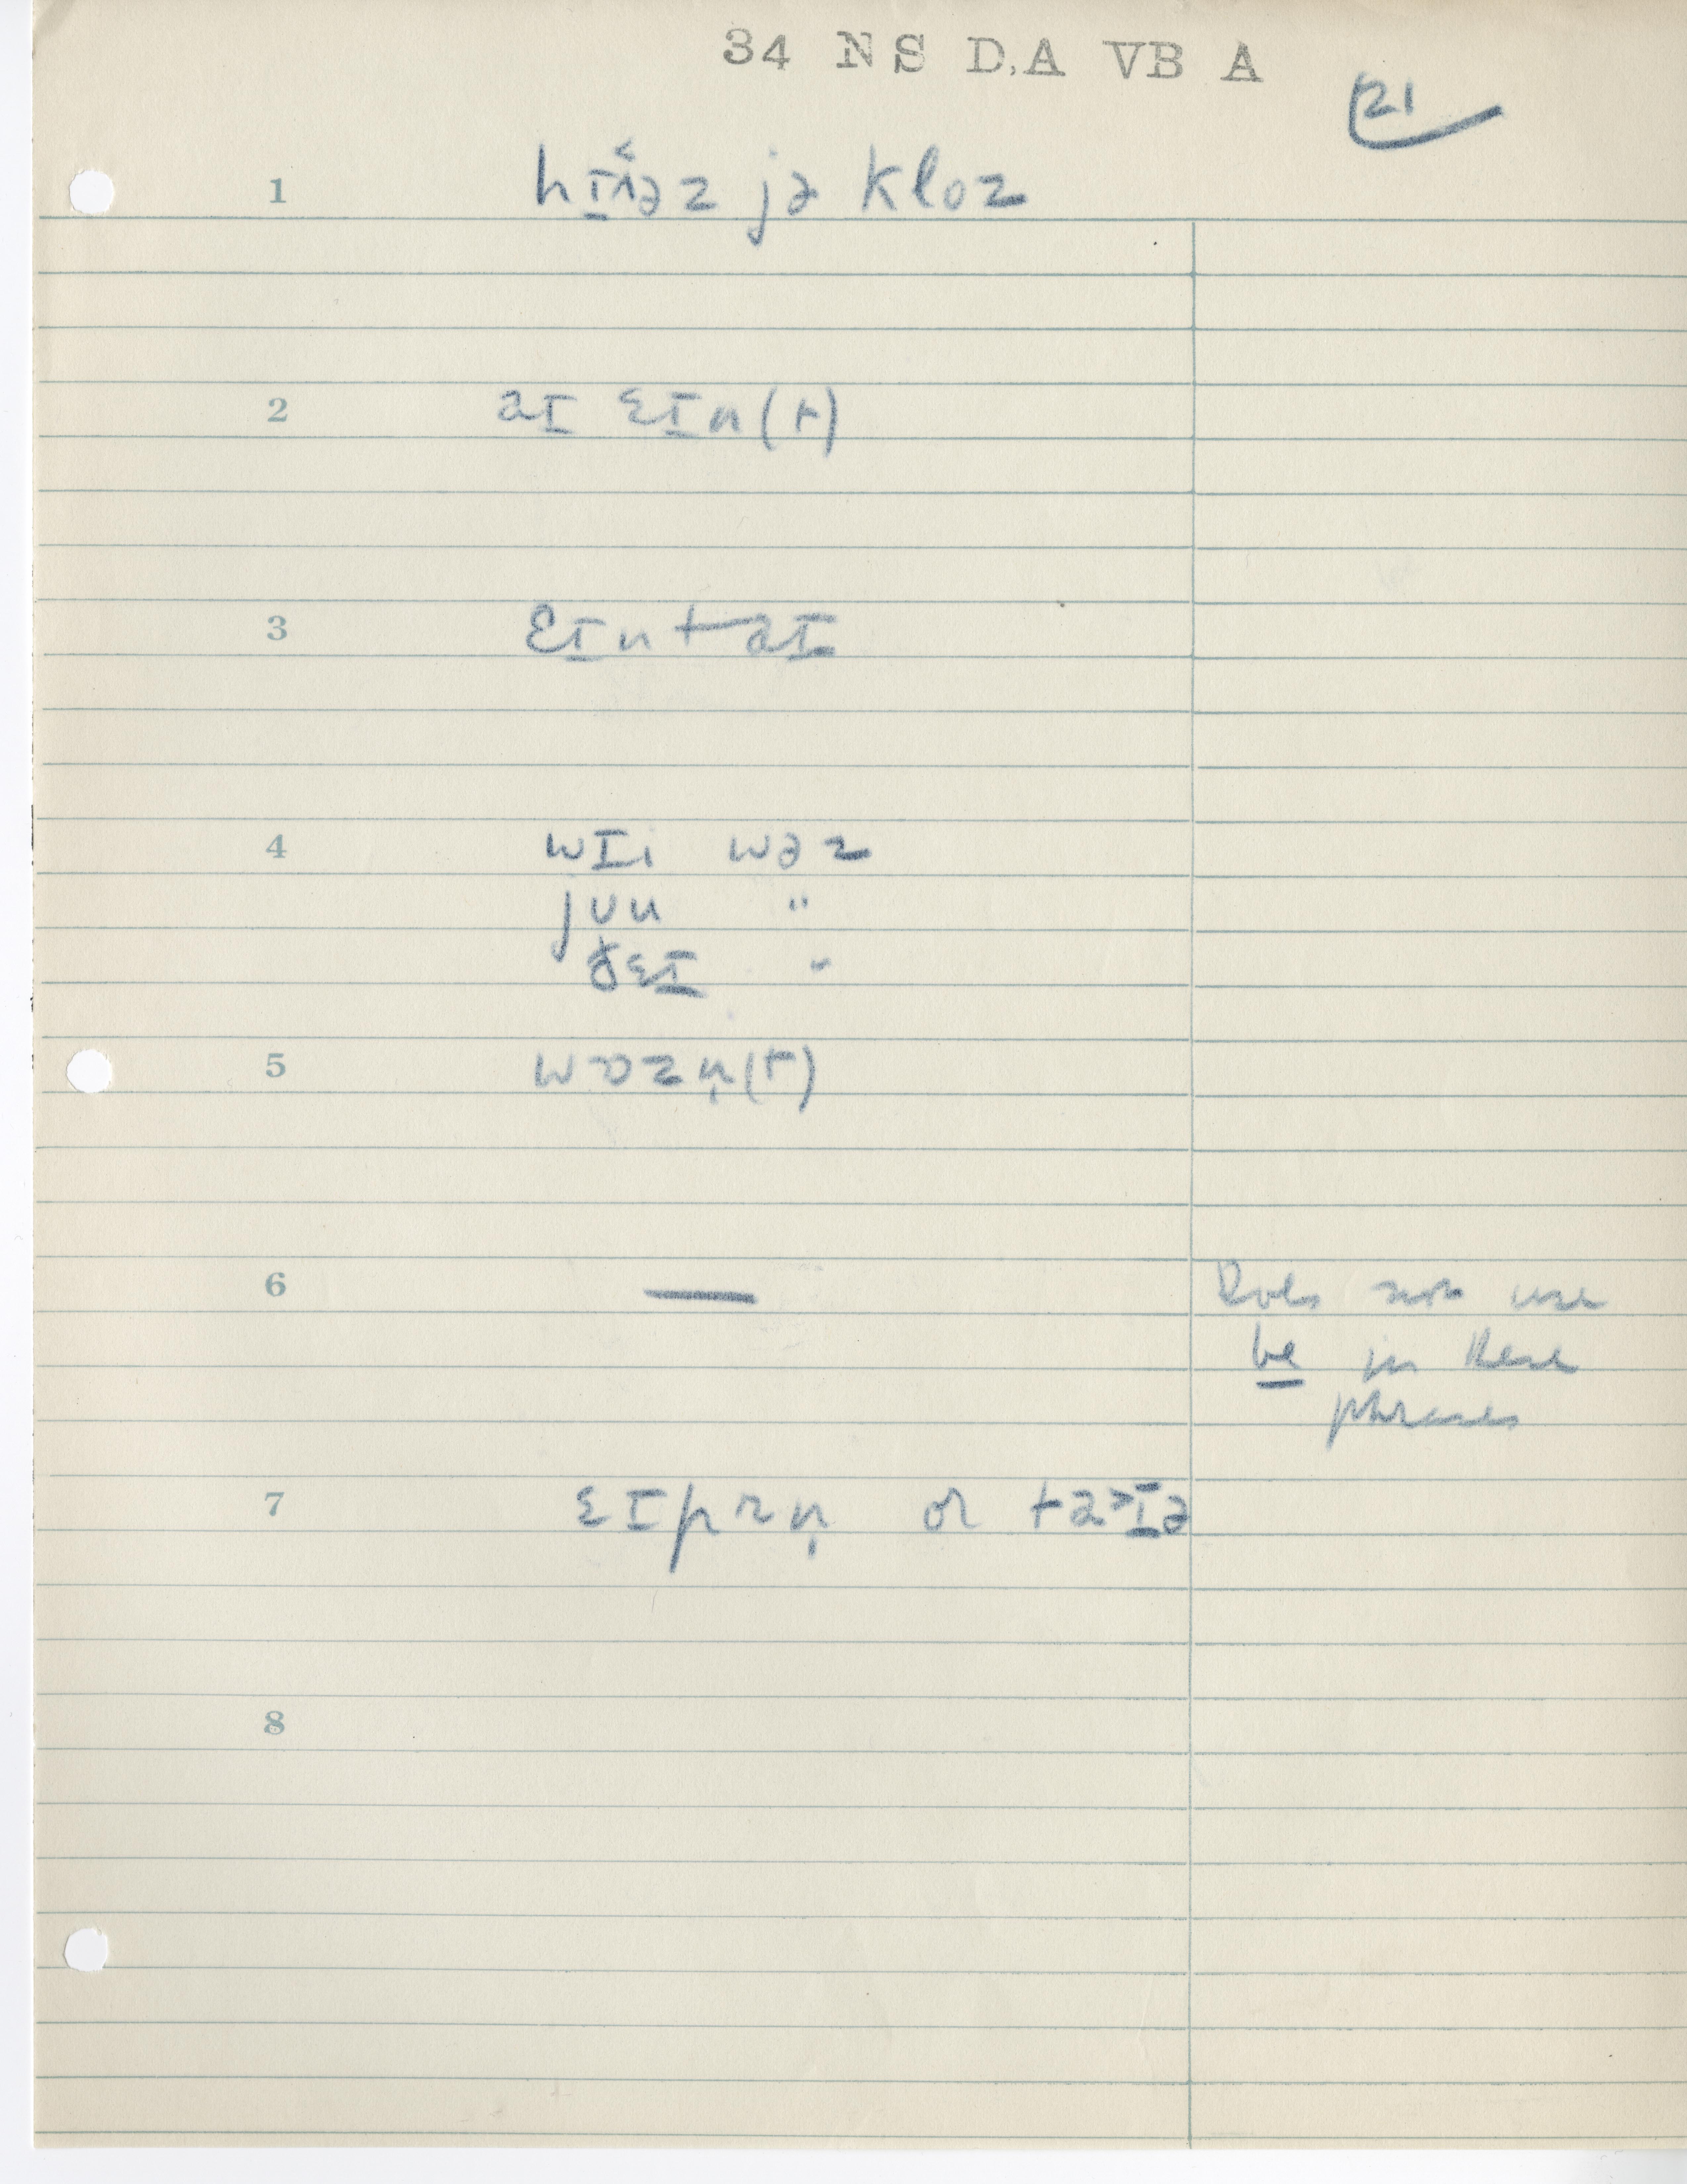 34 NS D.A VB A
21
1 hɪ̱ˑ̂əz jə kloz
2 aɪ̱ ɛɪ̱n(t)
3 ɛɪ̱ntaɪ̱
4 wɪi wəz
jʊu "
ðɛɪ̱ "
5 wɒzn̩(t)
6 — Does not use
be in these
phrases
7 ɛɪprn̩ or ta>ɪ̱ə
8